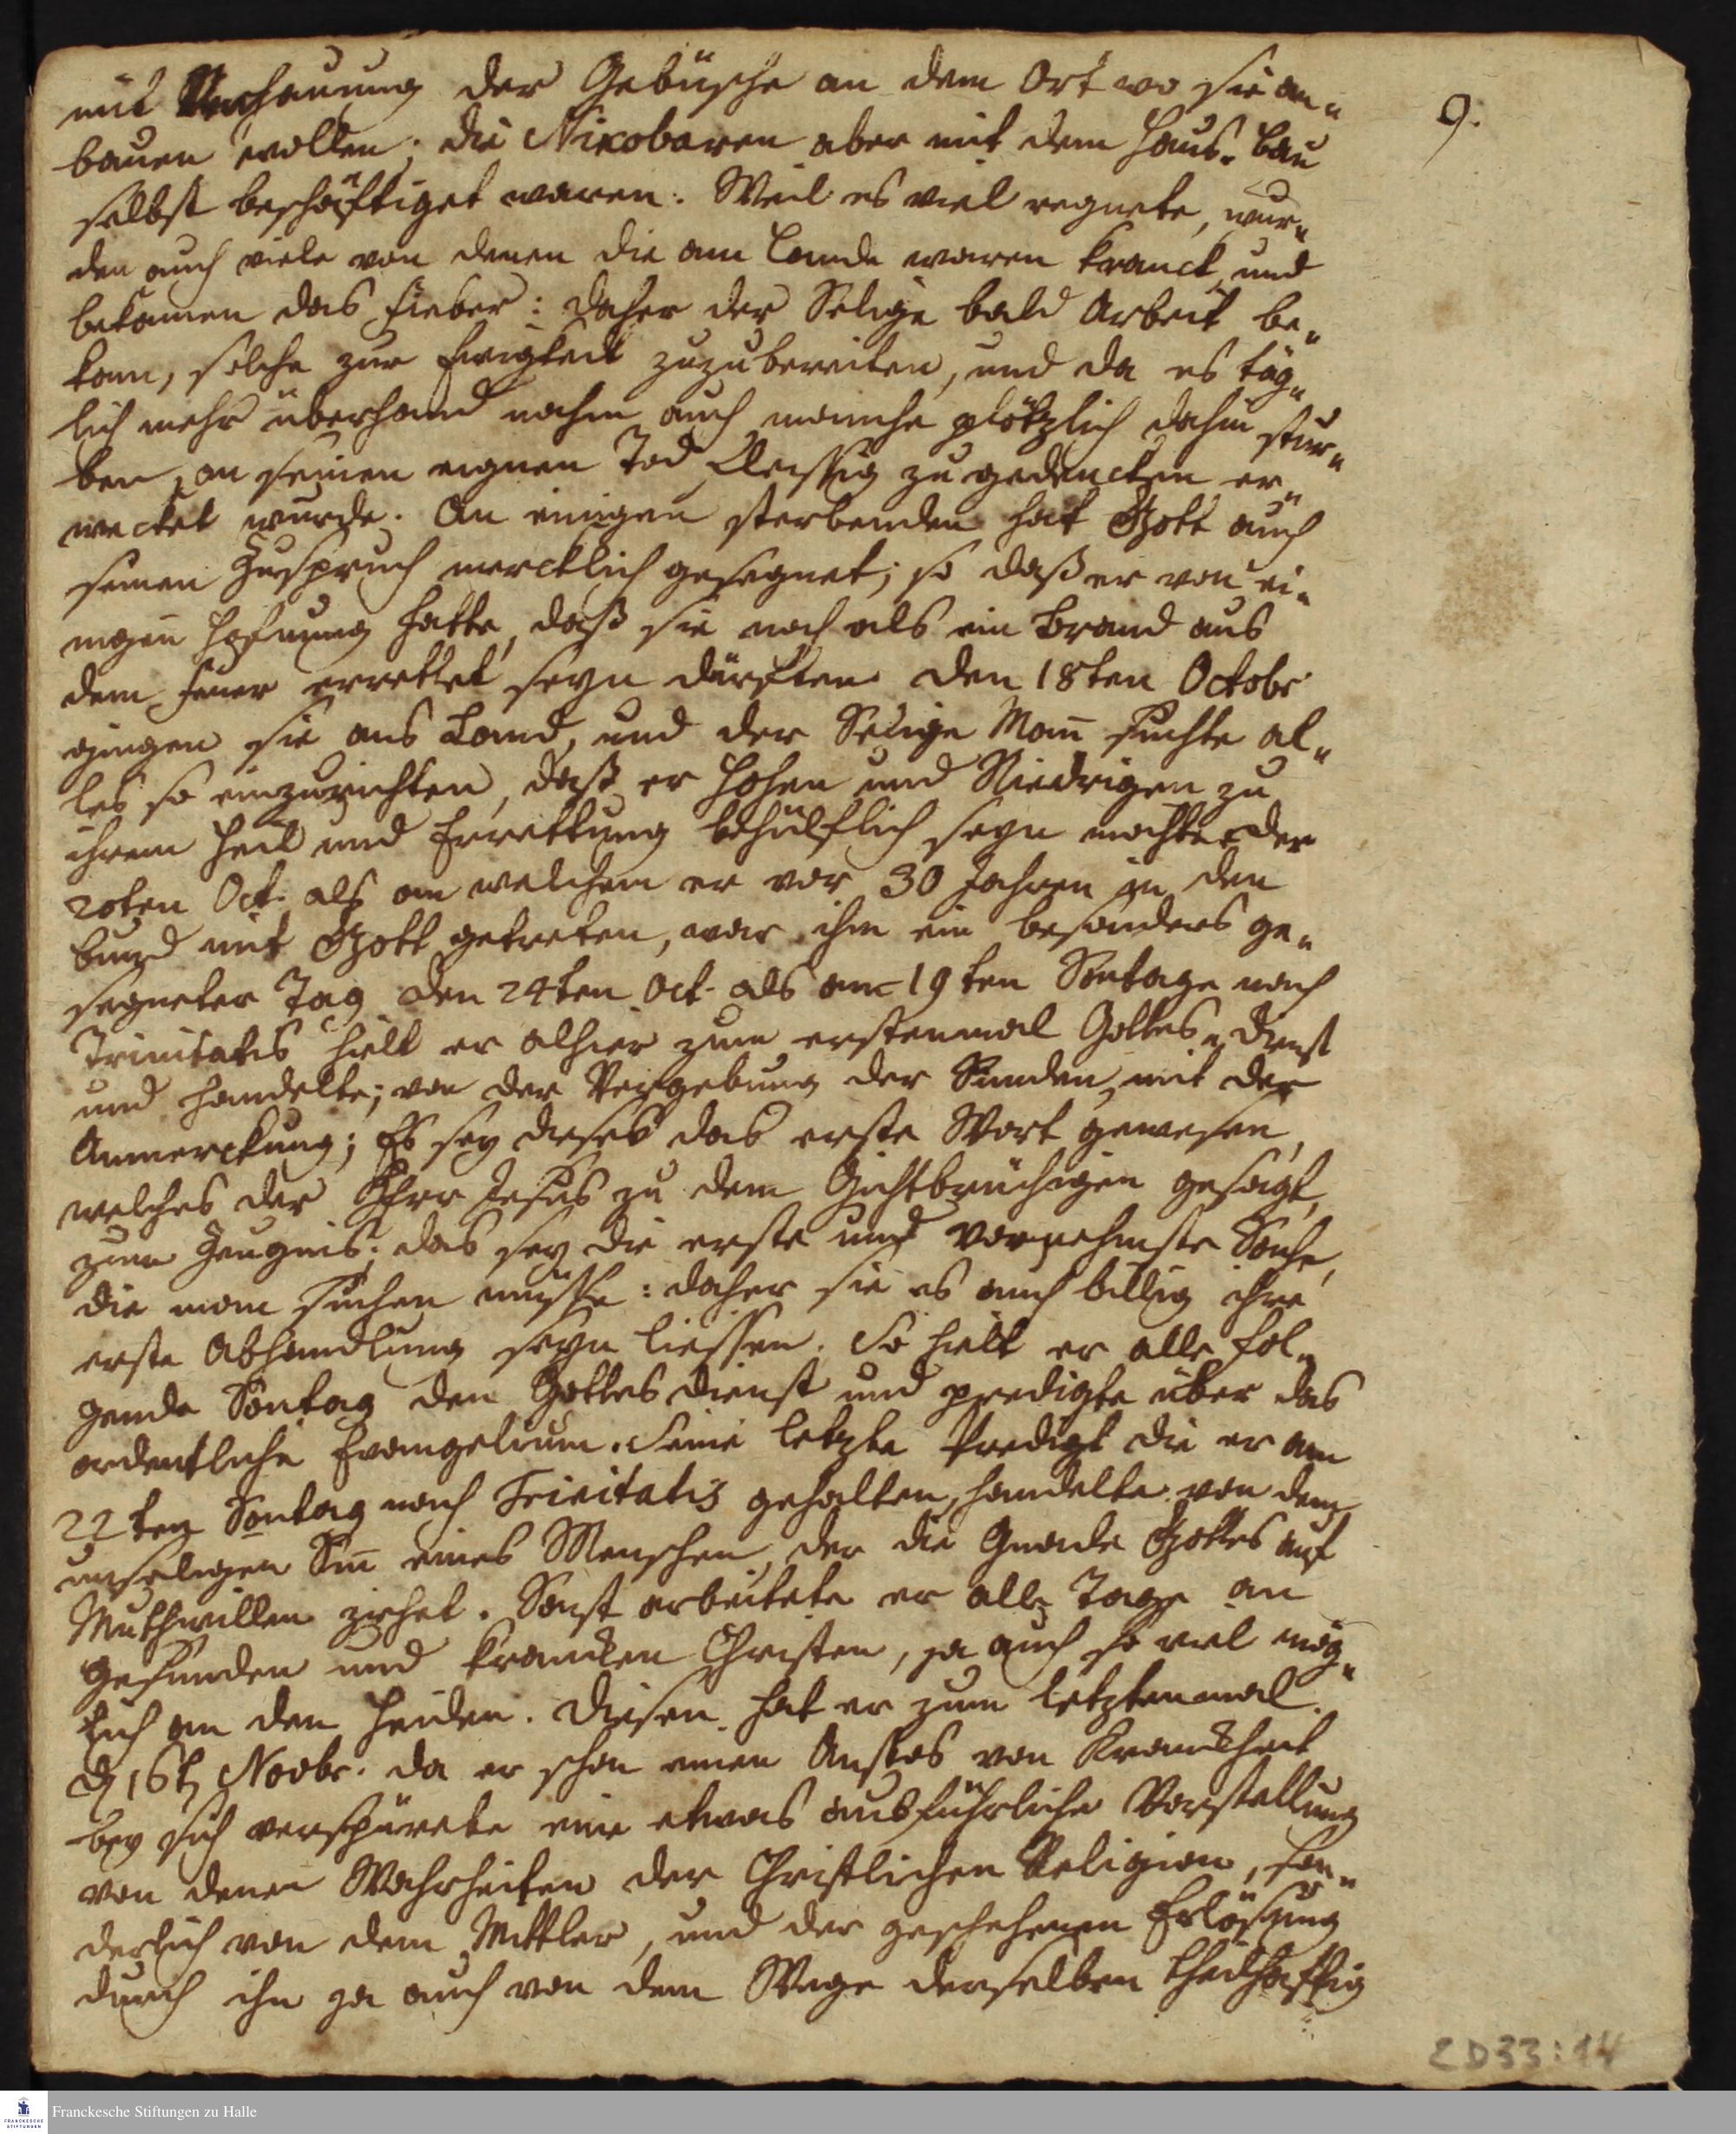 9.
mit Verhauung der Gebüsche an dem Ort wo sie an„
bauen wollen; die Nicobaren aber mit dem Haus„ Bau
selbst beschäftiget waren. Weil es viel regnete, wur„
den auch viele von denen die am Lande waren kranck und
bekamen das Fieber: daher der Selige bald Arbeit be„
kam, solche zur Ewigkeit zuzubereiten, und da es täg„
lich mehr überhand nahm auch manche plötzlich dahin stur„
ben, an seinen eignen Tod fleissig zu gedencken er„
wecket wurde. An einigen sterbenden hat Gott auch
seinen Zuspruch mercklich gesegnet; so daß er von ei„
nigen Hofnung hatte, daß sie noch als ein Brand aus
dem Feuer errettet seyn dürften. den 18ten Octobr
gingen sie ans Land, und der Selige Mañ suchte al„
les so einzurichten, daß er Hohen und Niedrigen zu
ihrem Heil und Errettung behülflich seyn mochte. der
20ten Oct. als an welchem er vor 30 Jahren in den
bund mit Gott getreten, war ihm ein besonders ge„
segneter Tag. den 24ten Oct. als am 19ten Sontage nach
Trinitatis hielt er alhier zum erstenmal Gottes„ dienst
und handelte; von der Vergebung der Sünden, mit der
Anmerckung; Es sey dieses das erste Wort gewesen,
welches der HErr Jesus zu dem Gichtbrüchigen gesagt,
zum Zeugnis; das sey die erste und vornehmste Sache,
die man suchen müsse: daher sie es auch billig ihre
erste Abhandlung seyn liessen. So hielt er alle fol„
gende Sontag den Gottesdienst und predigte über das
ordentliche Evangelium. Seine letzte Predigt die er am
22ten Sontag nach Trinitatis gehalten, handelte von dem
unseligen Siñ eines Menschen, der die Gnade Gottes auf
Muthwillen ziehet. Sonst arbeitete er alle Tage an
gesunden und krancken Christen, ja auch so viel mög„
lich an den Heiden. Diesen hat er zum letztenmal
d 16t Novbr. da er schon einen Anstos von Kranckheit
bey sich verspürete eine etwas ausführliche Vorstellung
von denen Wahrheiten der Christlichen Religion, son„
derlich von dem Mittler, und der geschehenen Erlösung
durch ihn ja auch von dem Wege derselben theilhaftig
2D33:14
Franckesche Stiftungen zu Halle